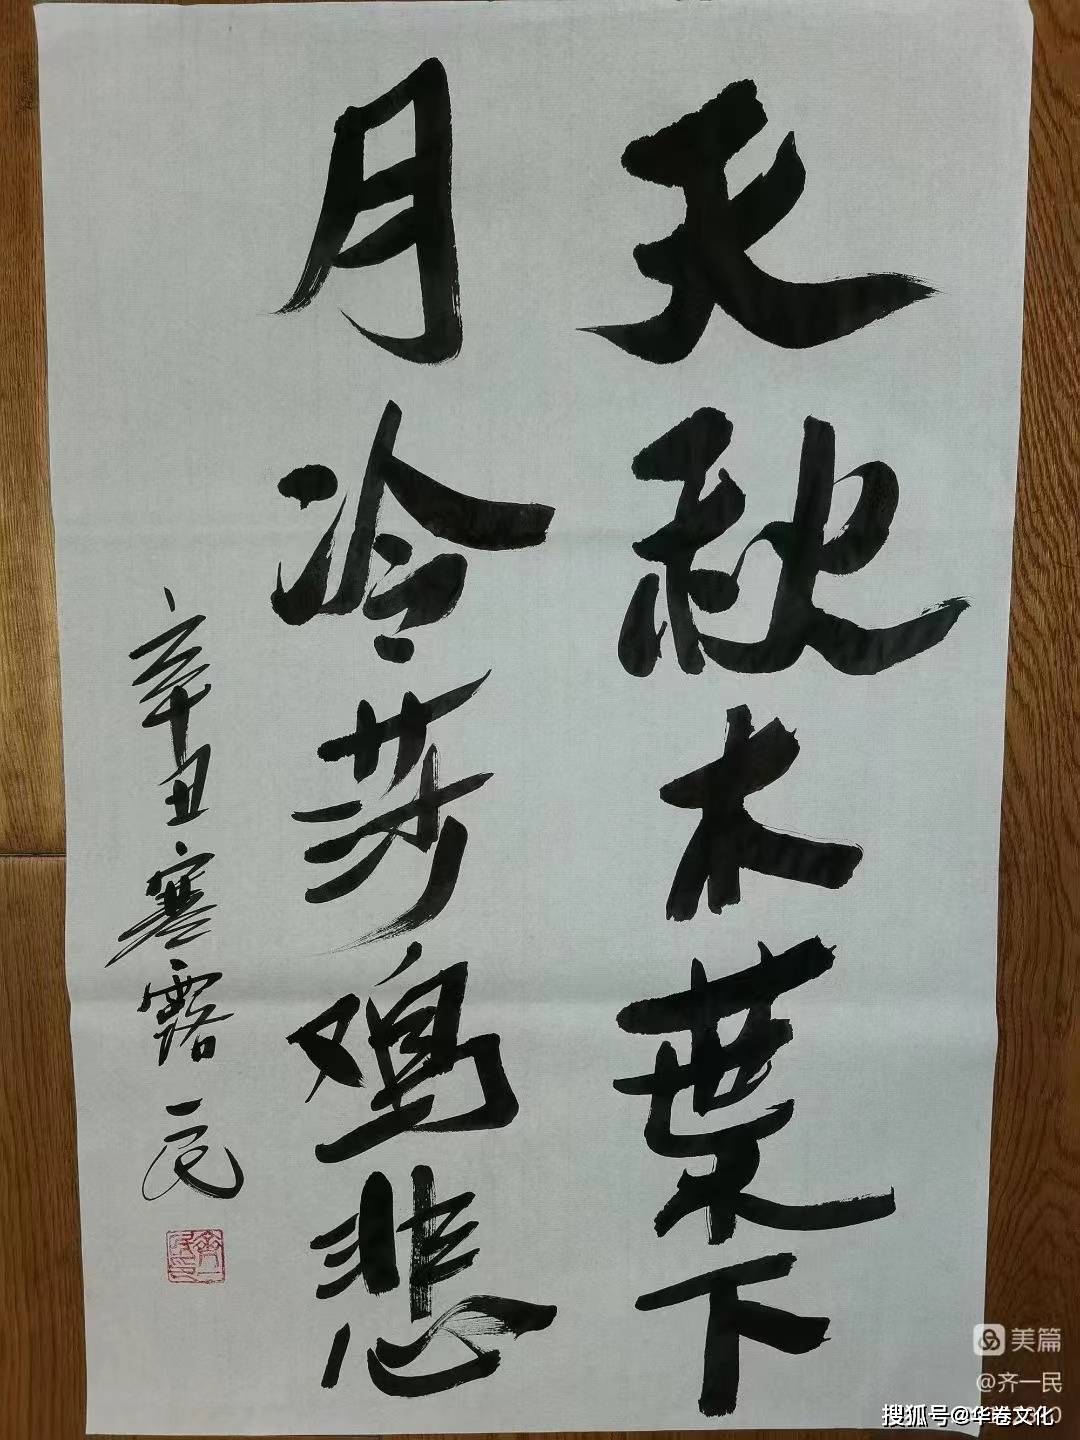 天秋木葉下
月冷莎鸡悲
辛丑寒露一民
美篇
@齐一民
搜狐号@华卷文化